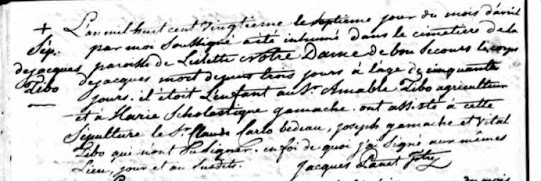 L'an mil huit cent vingtieme le septieme jour du mois d'avril
+ par moi soussigné a été inhumé dans le cimetiere de la
Sep. paroisse de Lislette Notre Dame de bon Secours le corps
de jacques de jacques mort depuis trois jours à l'age de cinquante
Zibo jours. il étoit l'enfant au Sr. Amable Zibo agriculteur
et à Marie Scholastique gamache. ont assisté à cette
Sépulture le Sr. Claude Carlo bedeau, joseph gamache et vital
Zibo qui n'ont pu signer. en foi de quoi j'ai signé aux mêmes
Lieu, jour et an susdits.
Jacques Panet Ptre